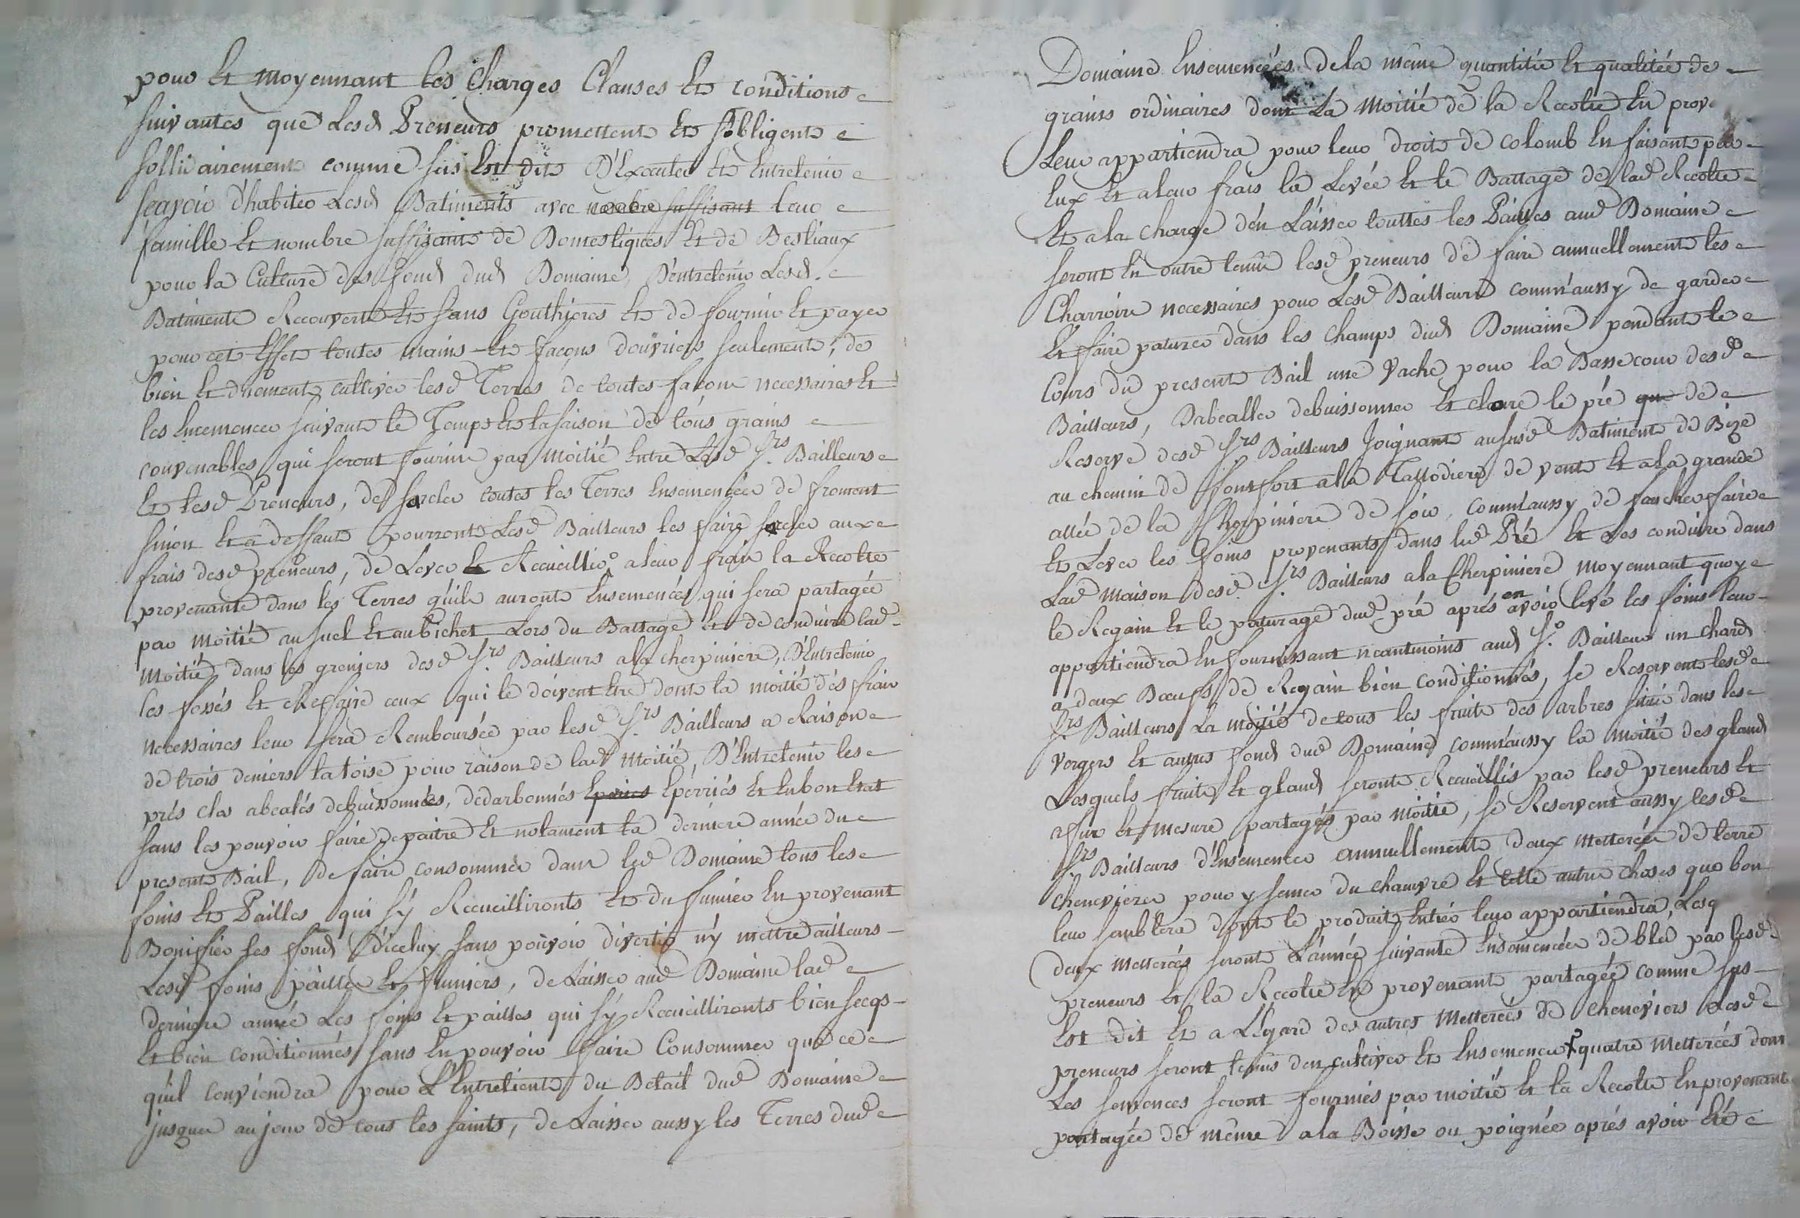 pour Et moyennant les Charges Clauses Et conditions
suivantes que Lesd Preneurs promettent Et s'obligent
sollidairement comme sus Est dit D'Executer Et Entretenir
sçavoir d'habiter Lesd Batiments avec nombre suffisant leur
famille Et nombre suffisant de Domestiques Et de Bestiaux
pour la Culture des fond dud Domaine, D'Entretenir Lesd.
Batiments Recouverts Et sans Gouthieres Et de fournir Et payer
pour cet Effet toutes mains Et façons d'ouvriers seulement, de
bien Et duement cultiver lesd Terres de toutes façons necessaires Et
les Ensemencer suivant le Temps Et la saison de tous grains
convenables qui seront fournir par moitié Entre Lesd Srs. Bailleurs
Et lesd Preneurs, de sarcler toutes les Terres Ensemencées de froment
sinon Et a deffaut pourront Lesd Bailleurs les faire sarcler aux
frais desd preneurs, de Lever Et Recueillir a leur frais la Recolte
provenante dans les Terres qu'ils auront Ensemencés qui sera partagée
par moitié au suel Et au bichet Lors du Battage Et de conduire lad
moitié dans les greniers desd Srs. Bailleurs a la cherpiniere, D'Entretenir
les fossés Et Reffaire ceux qui le doivent Etre dont la moitié des frais
necessaires leur sera Remboursée par lesd Srs. Bailleurs a Raison
de trois deniers la toise pour raison de lad moitié, D'Entretenir les
prés clos abealés debuissonnés, dedarbonnés Epiriés Epérriés Et En bon Etat
sans les pouvoir faire depaitre Et notament la derniere année du
present Bail, de faire consommer dans led Domaine tous les
foins Et Pailles qui s'y Recueilliront Et du fumier En provenant
Bonifier les fond D'iceluy sans pouvoir divertir n'y mettre ailleurs
Lesd foins pailles Et fumiers, de Laisser aud Domaine lad
derniere année Les foins Et pailles qui s'y Recueilliront bien secqs
Et bien conditionnés sans En pouvoir faire Consommer que ce
qu'il conviendra pour L'Entretient du Betail dud Domaine
jusques au jour de tous les saints, de Laisser aussy les Terres dud
Domaine Ensemencées de la même quantitée Et qualitée de
grains ordinaires dont La moitié de la Recolte En prov
Leur appartiendra pour leur droit de colomb En faisant par
Eux Et a leur frais la Levée Et le Battage de lad Recolte
Et a la charge d'En Laisser touttes les Pailles aud Domaine
seront En outre tenus lesd preneurs de faire annuellement les
Charrois necessaires pour Lesd Bailleurs comm'aussy de garder
Et faire paturer dans les champs dud Domaine pendant le
Cours du present Bail une vache pour la Basse cour desd
Bailleurs, Dabealler debuissonner Et clore le pré que de
Reserve desd Srs Bailleurs Joignant au susd Batiment de Bize
au chemin de fontfort a la Tallodiere de vent Et a la grande
allée de la Cherpiniere de soir, comm'aussy de faucher faire
Et Lever les foins provenants dans led Pré Et Les conduire dans
Lad maison desd Srs. Bailleurs a la Cherpiniere moyennant quoy
le Regain Et le paturage dud pré aprés en avoir levé les foins leur
appartiendra En fournissant neantmoins aud Sr. Bailleur un chard
a deux Bœufs de Regain bien conditionnés, se Reservent lesd
Srs Bailleurs La moitié de tous les fruits des arbres situés dans les
vergers Et autres fond dud Domaine comm'aussy la moitié des gland
Lesquels fruits Et gland seront Recueillis par lesd preneurs Et
a fur Et mesure partagés par moitié, se Reservent aussy lesd
Srs Bailleurs d'Ensemencer annuellement deux metterées de terre
cheneviere pour y semer du chanvre Et telle autre choses que bon
leur semblera dont le produit Entier leur appartiendra, Lesq
deux metterées seront L'année suivante Ensemencée de bled par lesd
preneurs Et la Recolte En provenant partagée comme sus
Est dit Et a L'Egard des autres metterées de Cheneviers Lesd
preneurs seront tenus d'en cultiver Et Ensemencer quatre metterées dont
Les semences seront fournies par moitié Et la Recolte En provenant
partagée de même a la Boisse ou poignée aprés avoir Eté